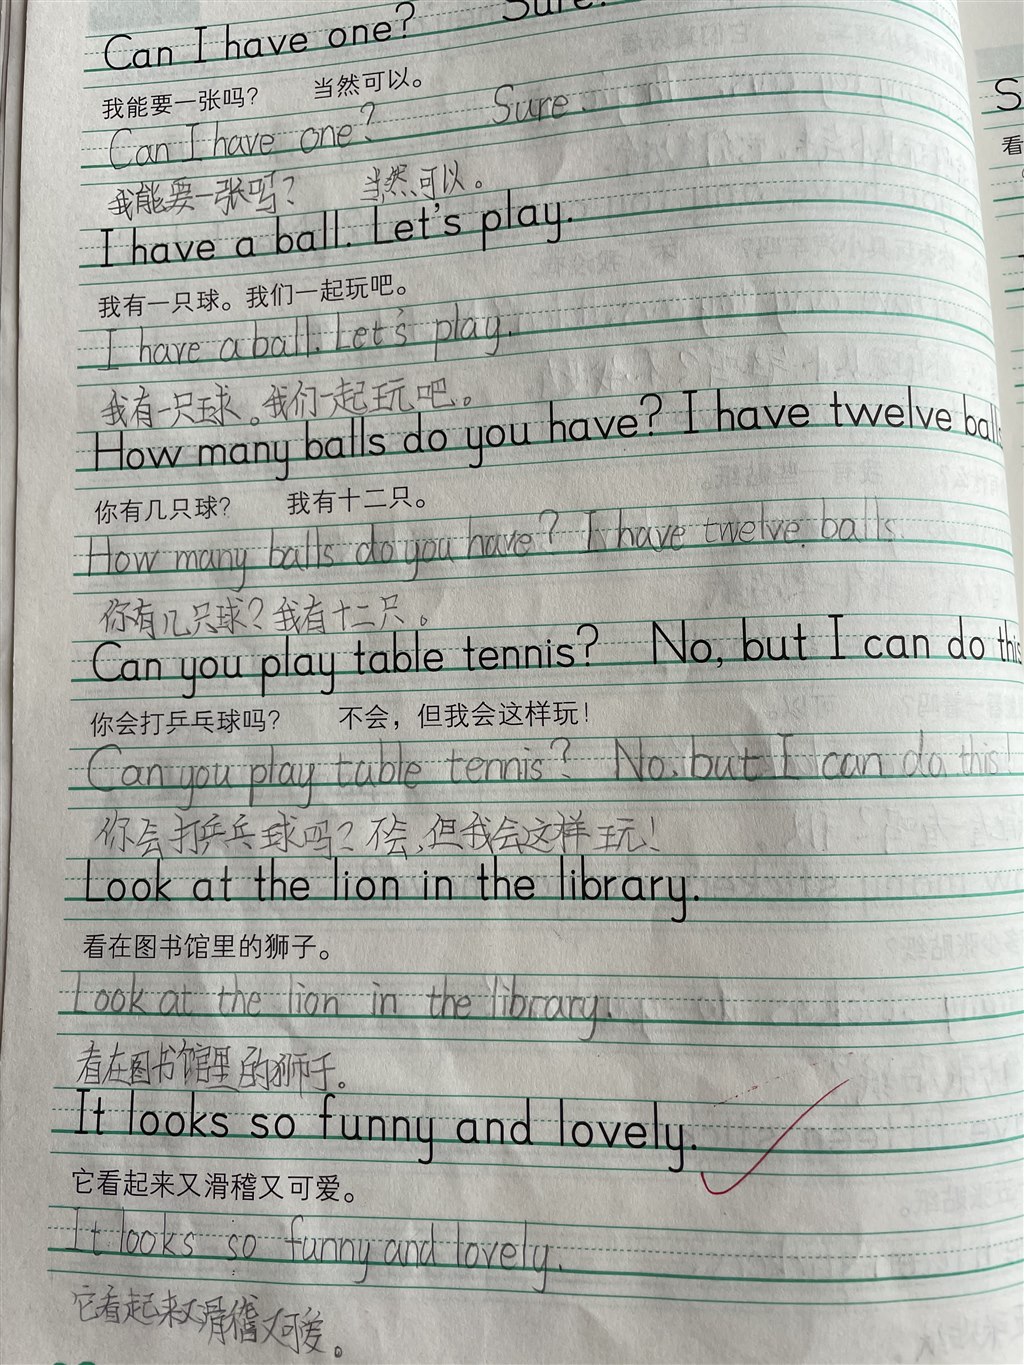 Can I have one? Sure.
我能要一张吗? 当然可以。
Can I have one? Sure.
我能要一张吗? 当然可以。
I have a ball. Let's play.
我有一只球。我们一起玩吧。
I have a ball. Let's play.
我有一只球。我们一起玩吧。
How many balls do you have? I have twelve balls
你有几只球? 我有十二只。
How many balls do you have? I have twelve balls.
你有几只球?我有十二只。
Can you play table tennis? No, but I can do this
你会打乒乓球吗? 不会，但我会这样玩!
Can you play table tennis? No, but I can do this!
你会打乒乓球吗?不会,但我会这样玩!
Look at the lion in the library.
看在图书馆里的狮子。
Look at the lion in the library.
看在图书馆里的狮子。
It looks so funny and lovely.
它看起来又滑稽又可爱。
It looks so funny and lovely.
它看起来又滑稽又可爱。
S
看